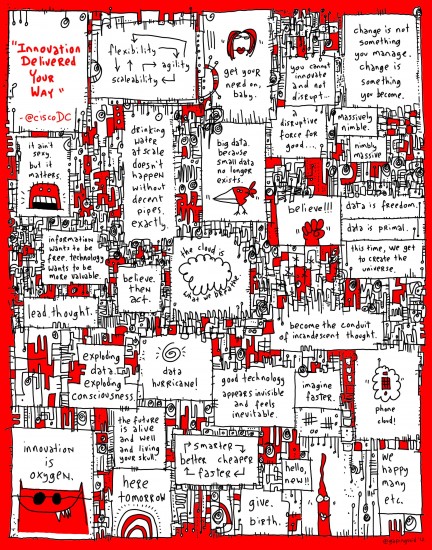 "Innovation
Delivered
Your
Way"
- @ciscoDC
flexibility
agility
scaleability
get your
nerd on,
baby.
you cannot
innovate
and not
disrupt.
change is not
something
you manage.
change is
something
you become.
it ain't
sexy.
but it
matters.
drinking
water
at scale
doesn't
happen
without
decent
pipes.
exactly.
big data.
because
small data
no longer
exists.
disruptive
force for
good...
massively
nimble.
nimbly
massive
believe!!!
data is freedom.
data is primal.
this time, we get
to create the
universe.
information
wants to be
free. technology
wants to be
more valuable.
believe.
then
act.
the cloud is
what we breathe
lead thought.
become the conduit
of incandescent thought.
exploding
data.
exploding
consciousness.
data
hurricane!
good technology
appears invisible
and feels
inevitable.
imagine
faster.
phone
cloud!
innovation
is
oxygen.
the future
is alive
and well
and living
your skull
smarter
better cheaper
faster
here
tomorrow
hello,
new!!
give.
birth.
we
happy
many
etc.